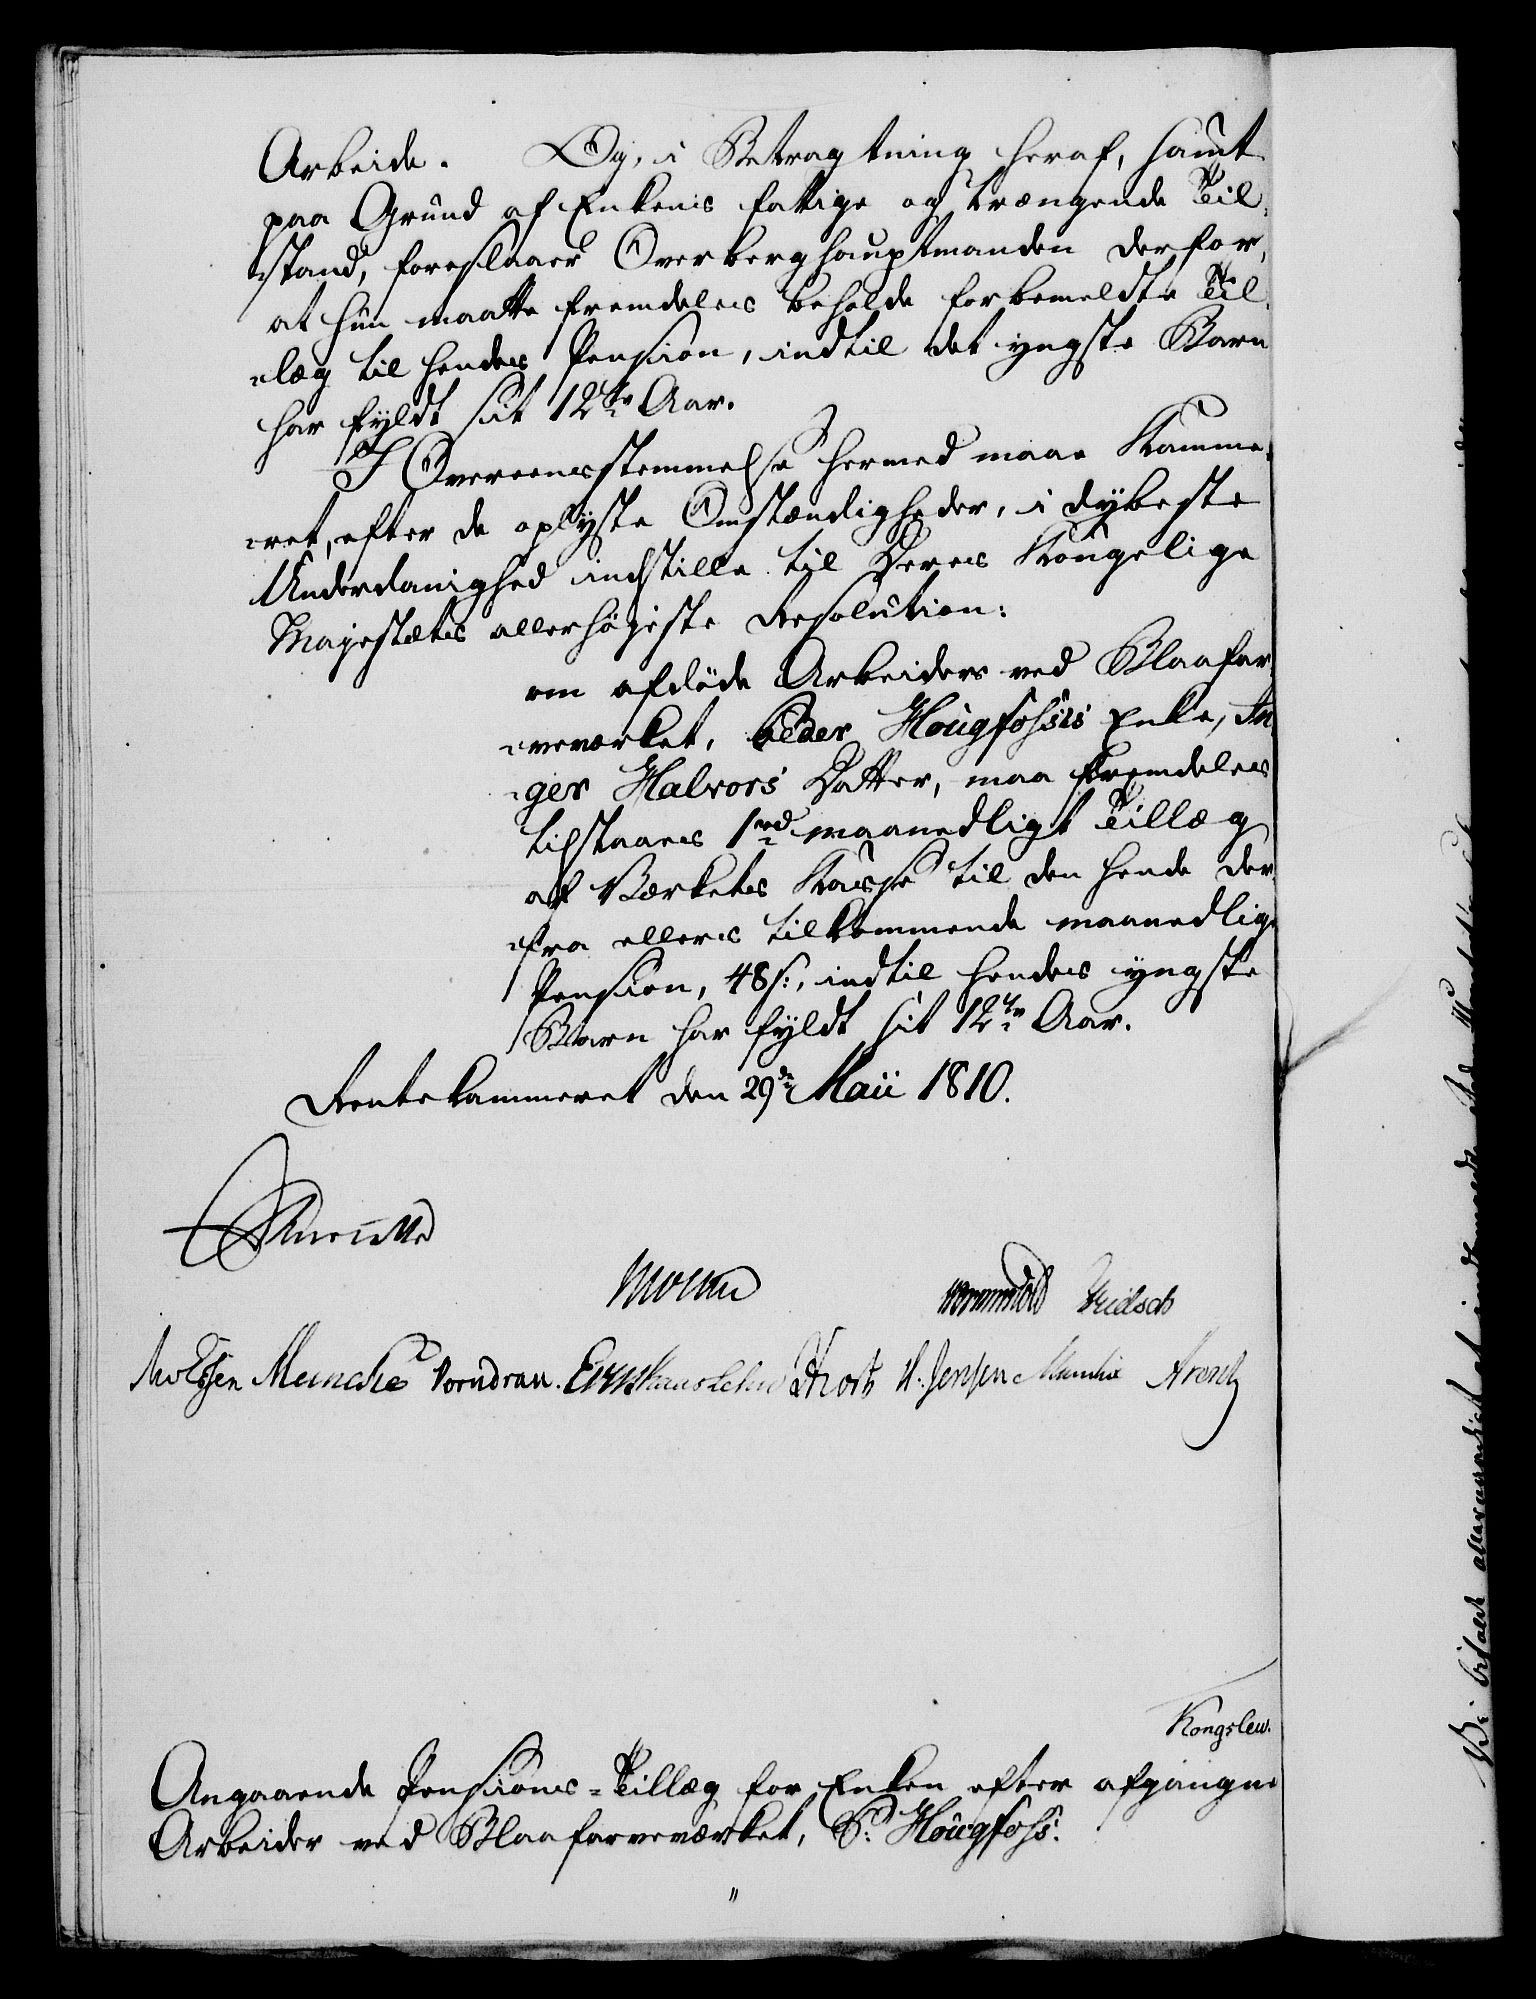 Arbeide. Og, i Betragtning heraf, samt
paa Grund af Enkens fattige og trængende Til-
-stand, foreslaaer Overberghauptmanden derfor,
at hun maatte fremdeles beholde forbemeldte Til-
-læg til hendes Pension, indtil det yngste Barn
har fyldt sit 12te Aar.
I Overeensstemmelse hermed maae Kamme-
-ret, efter de oplyste Omstændigheder, i dybeste
Underdanighed indstille til Deres Kongelige
Majestæts allerhøjeste Resolution:
om afdøde Arbeiders ved Blaafar-
-veværket, Peder Hougfoss's Enke, In-
-ger Halvors Datter, maa fremdeles
tilstaaes 1rd maanedligt Tillæg
af Værkets Kasse til den hende der-
-fra ellers tilkommende maanedlige
Pension, 48 s:, indtil hendes yngste
Barn har fyldt sit 12te Aar.
Rentekammeret den 29de Maii 1810.
Wormskiold
Meincke Vorndran. Knoph H. Jensen Munthe Arentz
Kongslew.
Angaaende Pensions-Tillæg for Enken efter afgangne
Arbeider ved Blaafarveværket, P: Hougfoss.
"